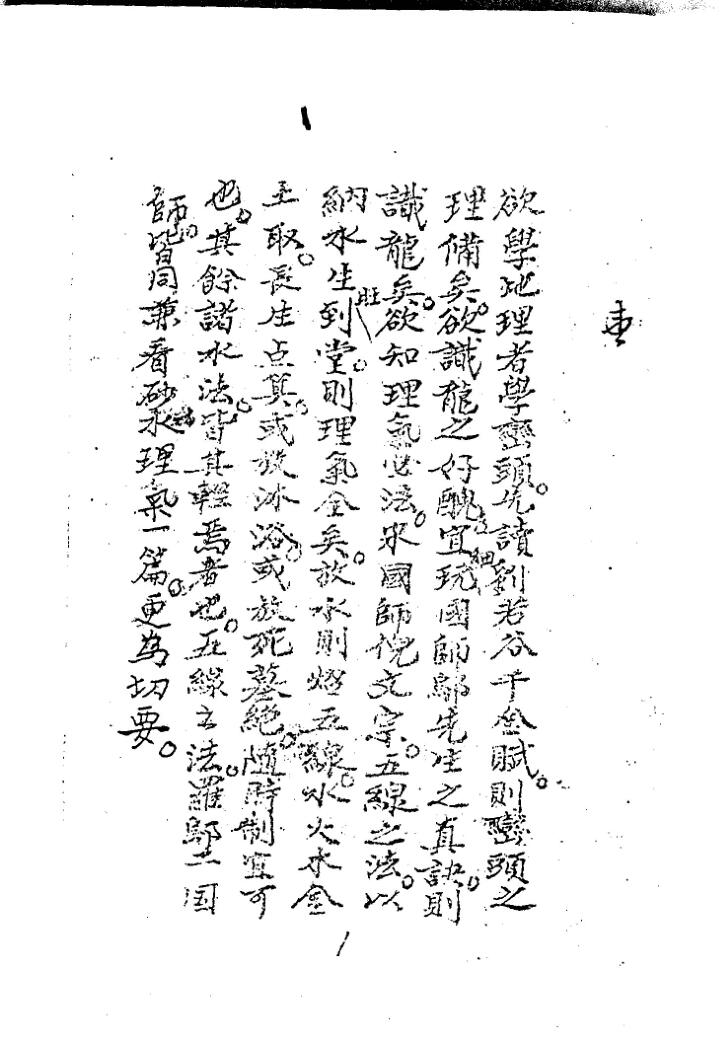 1
欲學地理者學巒頭。先讀劉若谷千金賦。則巒頭之
理備矣。欲識龍之好醜。宜玩細國師鄔先生之真訣。則
識龍矣。欲知理氣必法。求國師倪文宗。五線之法。以
納水生旺到堂。則理氣全矣。放水則燈五線。水火水金
土取。長生点算。或放沐浴。或放死墓絕。随時制宜可
也。其餘諸水法。皆其輕焉者也。五線立法。羅鄔二国
師。皆同兼看砂水理氣一篇。更為切要。
1